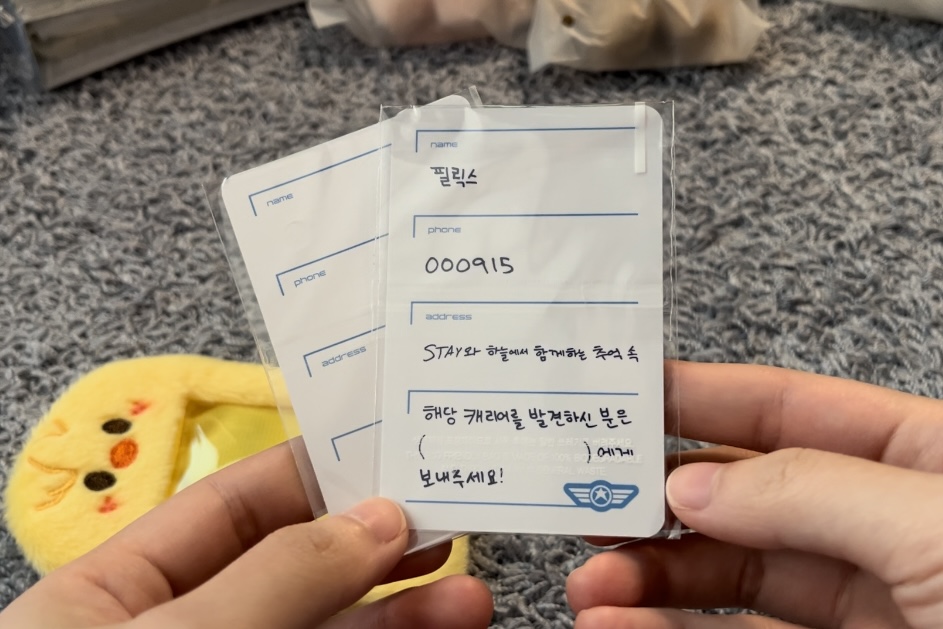 name
필릭스
phone
000915
address
STAY와 하늘에서 함께하는 추억 속
해당 캐리어를 발견하신 분은
( )에게
보내주세요!
name
phone
address